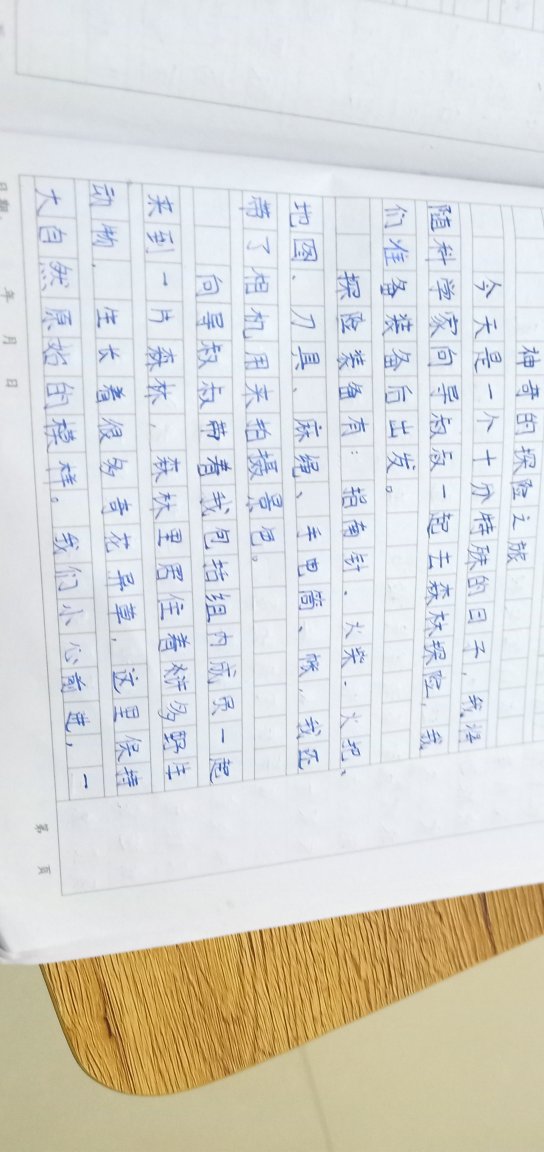 神奇的探险之旅
今天是一个十分特殊的日子，我将
随科学家向导叔叔一起去森林探险，我
们准备装备后出发。
探险装备有：指南针、火柴、火把、
地图、刀具、麻绳、手电筒、帐，我还
带了相机用来拍摄景色。
向导叔叔带着我包括组内成员一起
来到一片森林，森林里居住着许多野生
动物，生长着很多奇花异草，这里保持
大自然原始的模样。我们小心前进，一
日期： 年 月 日
第 页